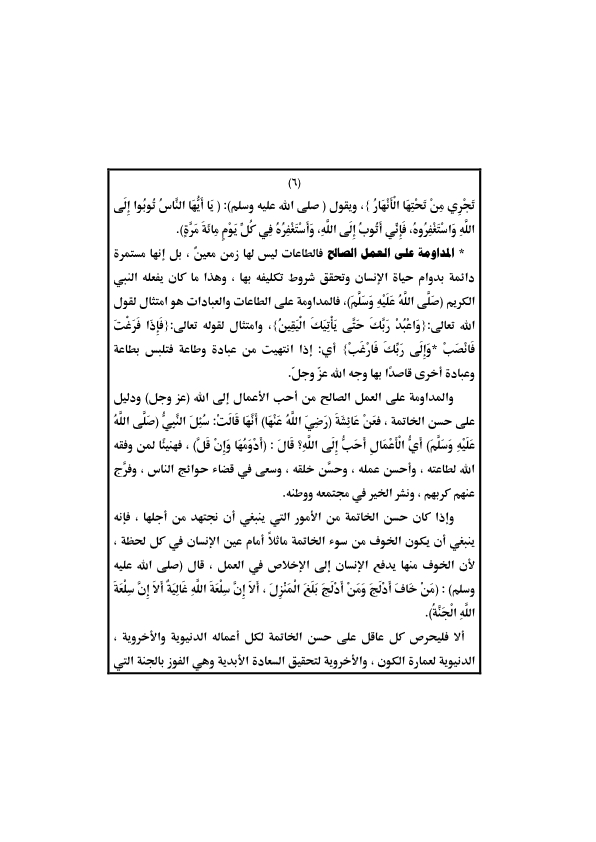 (٦)
تَجْرِي مِنْ تَحْتِهَا الْأَنْهَارُ }، ويقول ( صلى الله عليه وسلم): ( يَا أَيُّهَا النَّاسُ تُوبُوا إِلَى
اللَّهِ وَاسْتَغْفِرُوهُ، فَإِنِّي أَتُوبُ إِلَى اللَّهِ، وَأَسْتَغْفِرُهُ فِي كُلِّ يَوْمٍ مِائَةَ مَرَّةٍ).
* المداومة على العمل الصالح فالطاعات ليس لها زمن معينٌ ، بل إنها مستمرة
دائمة بدوام حياة الإنسان وتحقق شروط تكليفه بها ، وهذا ما كان يفعله النبي
الكريم (صَلَّى اللَّهُ عَلَيْهِ وَسَلَّمَ)، فالمداومة على الطاعات والعبادات هو امتثال لقول
الله تعالى:{وَاعْبُدْ رَبَّكَ حَتَّى يَأْتِيَكَ الْيَقِينُ}، وامتثال لقوله تعالى:{فَإِذَا فَرَغْتَ
فَانْصَبْ *وَإِلَى رَبِّكَ فَارْغَبْ} أي: إذا انتهيت من عبادة وطاعة فتلبس بطاعة
وعبادة أخرى قاصدًا بها وجه الله عزّ وجلّ.
والمداومة على العمل الصالح من أحب الأعمال إلى الله (عز وجل) ودليل
على حسن الخاتمة ، فعَنْ عَائِشَةَ (رَضِيَ اللَّهُ عَنْهَا) أَنَّهَا قَالَتْ: سُئِلَ النَّبِيُّ (صَلَّى اللَّهُ
عَلَيْهِ وَسَلَّمَ) أَيُّ الْأَعْمَالِ أَحَبُّ إِلَى اللَّهِ؟ قَالَ : (أَدْوَمُهَا وَإِنْ قَلَّ) ، فهنيئًا لمن وفقه
الله لطاعته ، وأحسن عمله ، وحسَّن خلقه ، وسعى في قضاء حوائج الناس ، وفرَّج
عنهم كربهم ، ونشر الخير في مجتمعه ووطنه.
وإذا كان حسن الخاتمة من الأمور التي ينبغي أن نجتهد من أجلها ، فإنه
ينبغي أن يكون الخوف من سوء الخاتمة ماثلاً أمام عين الإنسان في كل لحظة ،
لأن الخوف منها يدفع الإنسان إلى الإخلاص في العمل ، قال (صلى الله عليه
وسلم) : (مَنْ خَافَ أَدْلَجَ وَمَنْ أَدْلَجَ بَلَغَ الْمَنْزِلَ ، أَلاَ إِنَّ سِلْعَةَ اللَّهِ غَالِيَةٌ أَلاَ إِنَّ سِلْعَةَ
اللَّهِ الْجَنَّةُ).
ألا فليحرص كل عاقل على حسن الخاتمة لكل أعماله الدنيوية والأخروية ،
الدنيوية لعمارة الكون ، والأخروية لتحقيق السعادة الأبدية وهي الفوز بالجنة التي